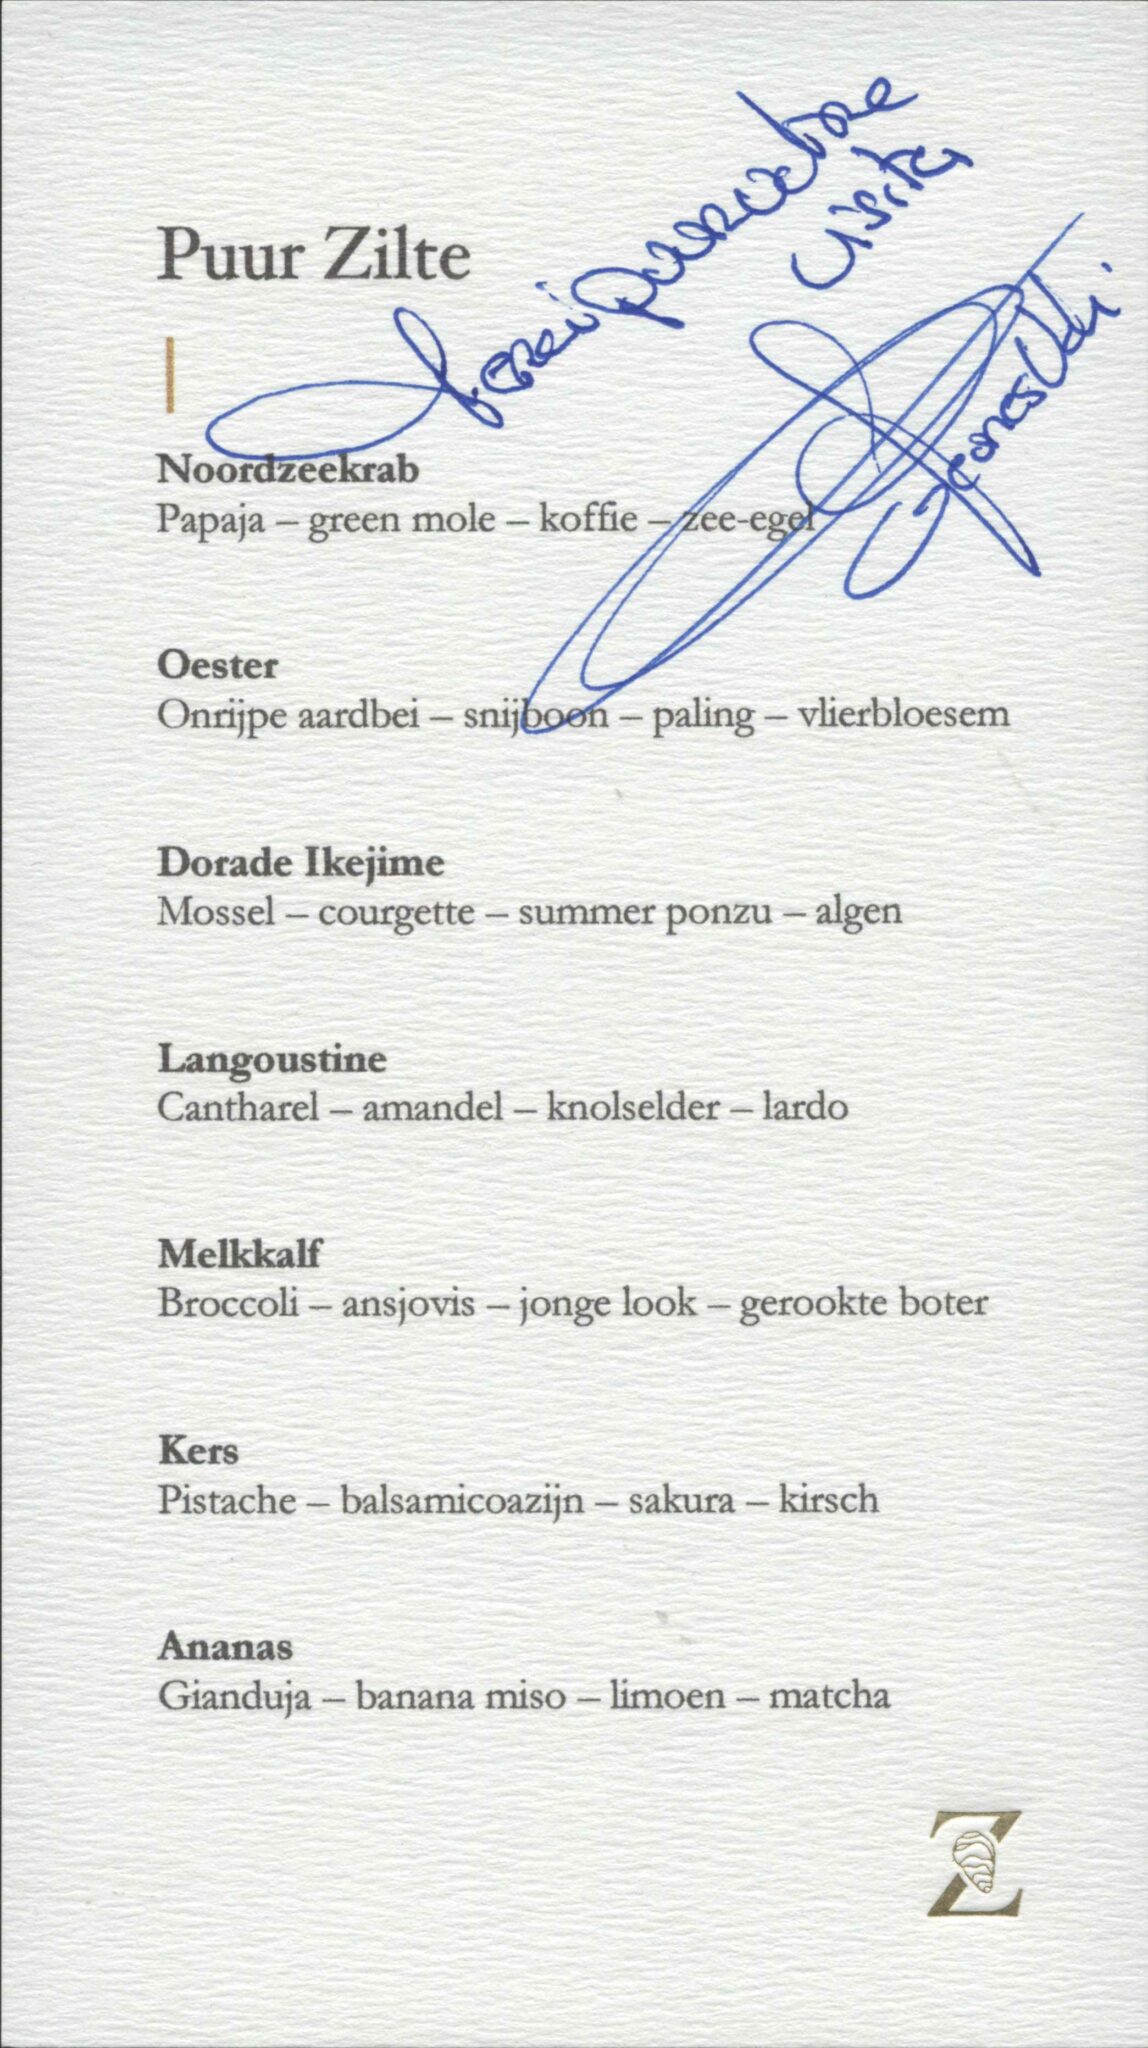 Puur Zilte
Merci pour votre
visite
Noordzeekrab
Papaja – green mole – koffie – zee-egel
Oester
Onrijpe aardbei – snijboon – paling – vlierbloesem
Dorade Ikejime
Mossel – courgette – summer ponzu – algen
Langoustine
Cantharel – amandel – knolselder – lardo
Melkkalf
Broccoli – ansjovis – jonge look – gerookte boter
Kers
Pistache – balsamicoazijn – sakura – kirsch
Ananas
Gianduja – banana miso – limoen – matcha
Z